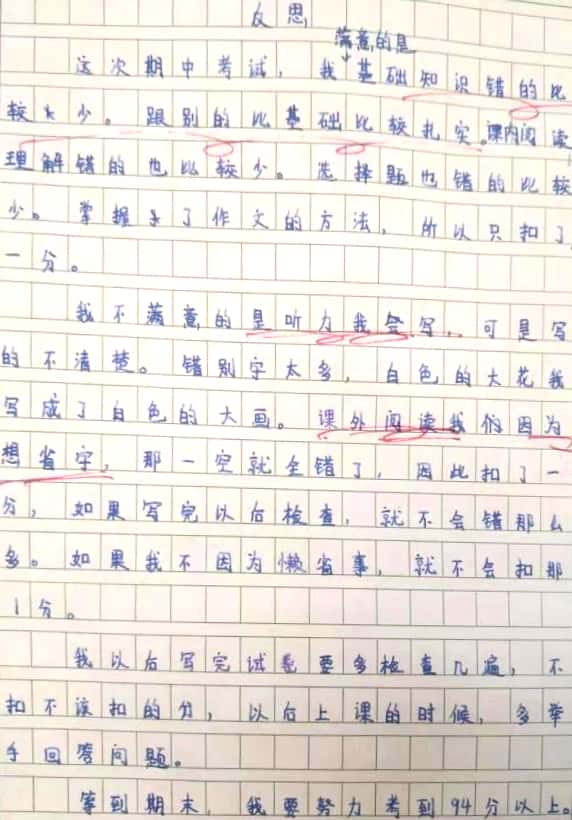 反思
满意的是
这次期中考试，我基础知识错的比
较少。跟别的比基础比较扎实。课内阅读
理解错的也比较少。选择题也错的比较
少。掌握了作文的方法，所以只扣了
一分。
我不满意的是听力我会写，可是写
的不清楚。错别字太多，白色的大花我
写成了白色的大画。课外阅读我们因为
想省字，那一空就全错了，因此扣了一
分，如果写完以后检查，就不会错那么
多。如果我不因为懒省事，就不会扣那
1分。
我以后写完试卷要多检查几遍，不
扣不该扣的分，以后上课的时候，多举
手回答问题。
等到期末，我要努力考到94分以上。